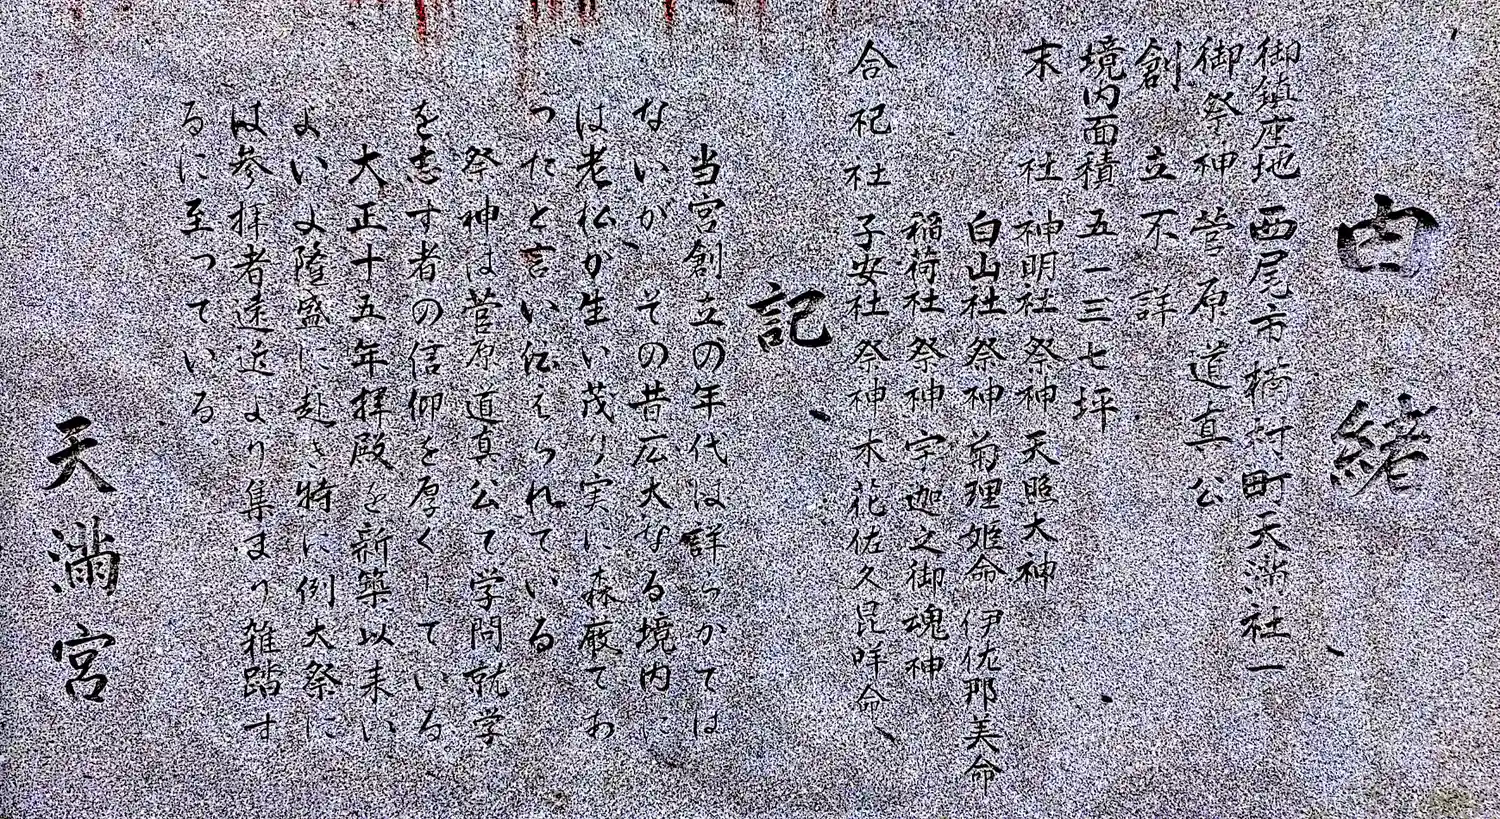 由緒
御鎮座地 西尾市楠村町天満社一
御祭神 菅原道真公
創立 不詳
境内面積 五一三七坪
末社 神明社 祭神 天照大神
白山社 祭神 菊理姫命 伊佐那美命
稲荷社 祭神 宇迦之御魂神
合祀社 子安社 祭神 木花佐久昆咩命
記
当宮創立の年代は詳らかでは
ないが、その昔広大なる境内に
は老松が生い茂り実に森厳であ
ったと言い伝えられている
祭神は菅原道真公で学問就学
を志す者の信仰を厚くしている
大正十五年拝殿を新築以来い
よいよ隆盛に赴き特に例大祭に
は参拝者遠近より集まり雑踏す
るに至っている。
天満宮